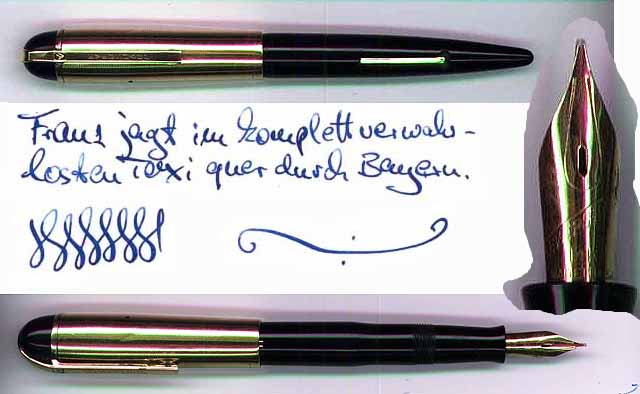 Franz jagt im komplett verwahr-
losten Taxi quer durch Bayern.